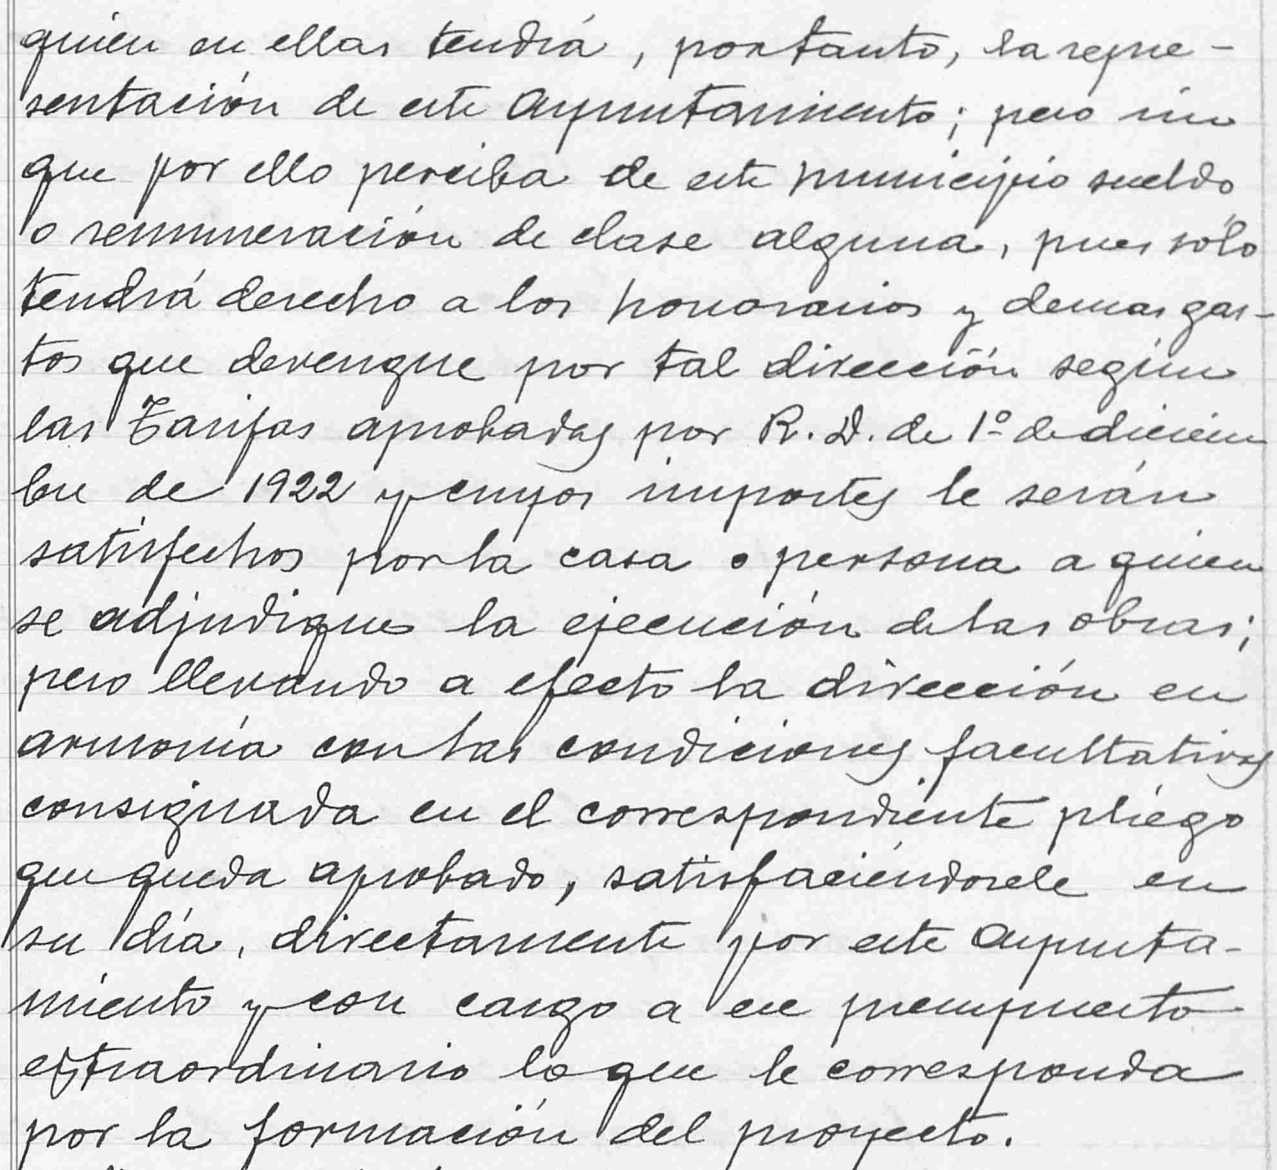 quien en ellas tendrá, por tanto, la repre-
sentación de este Ayuntamiento; pero sin
que por ello perciba de este municipio sueldo
o remuneración de clase alguna, pues sólo
tendrá derecho a los honorarios y demas gas-
tos que devengue por tal dirección según
las Tarifas aprobadas por R. D. de 1º de diciem
bre de 1922 y cuyos importes le serán
satisfechos por la casa o persona a quien
se adjudique la ejecución de las obras;
pero llevando a efecto la dirección en
armonía con las condiciones facultativas
consignada en el correspondiente pliego
que queda aprobado, satisfaciéndosele en
su día, directamente por este Ayunta-
miento y con cargo a ese presupuesto
extraordinario lo que le corresponda
por la formación del proyecto.